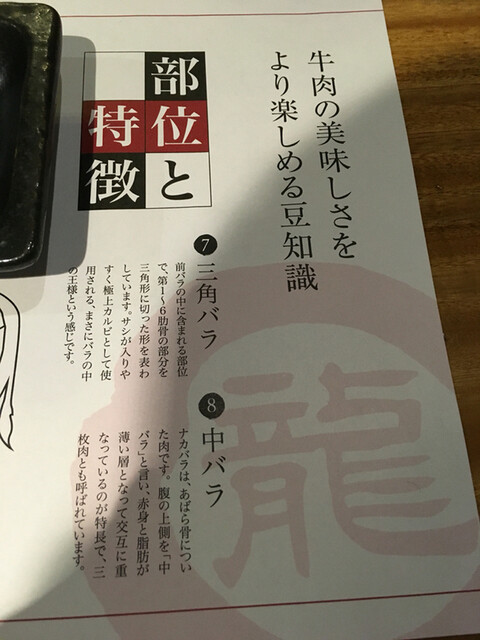 牛肉の美味しさを
より楽しめる豆知識
部位と
特徴
7 三角バラ
前バラの中に含まれる部位
で、第1〜6肋骨の部分を
三角形に切った形を表わ
しています。サシが入りや
すく極上カルビとして使
用される、まさにバラの中
の王様という感じです。
8 中バラ
ナカバラは、あばら骨につい
た肉です。腹の上側を「中
バラ」と言い、赤身と脂肪が
薄い層となって交互に重
なっているのが特長で、三
枚肉とも呼ばれています。
龍